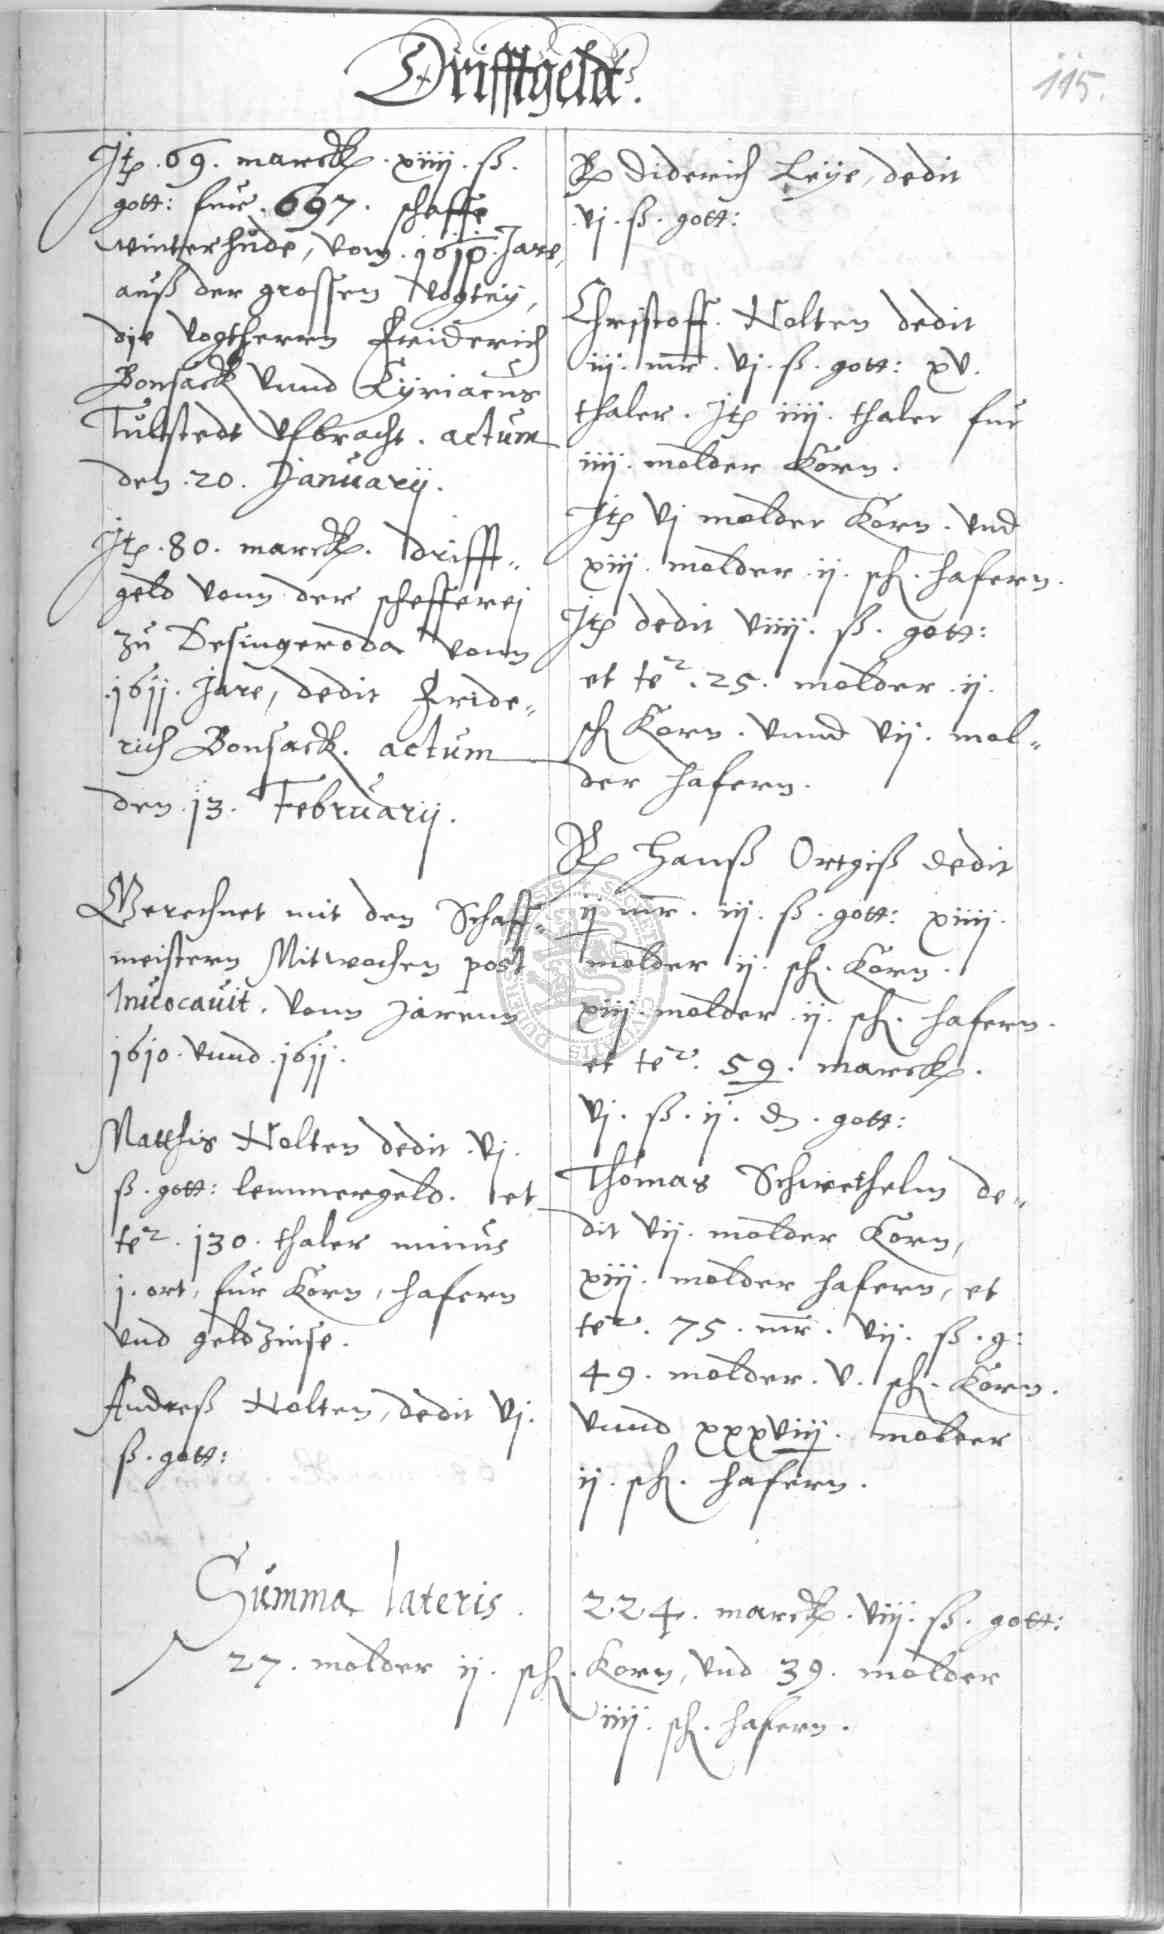 Drifftgeldt.
115.
Itp. 69. marck. xiiij. ß.
gott: fur. 697. schaffe
winterhude, vom. 1610. Jare,
auß der grossen Vogteij,
die Vogtherrn Friderich
Bonsack vnnd Cyriacus
Tutstedt vfbracht. actum
den. 20. Januarij.
Itp. 80. marck. drifft„
geld vonn der schefferej
zu Desingeroda vonn
.1611. Jare, dedit Fride„
rich Bonsack. actum
den. 13. Februarij.
Gerechnet mit den Schaff„
meistern Mitwochen post
Inuocauit. vonn Jarenn
1610. vnnd. 1611.
Matthis Nolten dedit. vj.
ß. gott: lemmergeld. et
te2. 130. thaler minus
j. ort, fur Korn, hafern
vnd geldzinse.
Andreß Nolten, dedit vj.
ß. gott:
Rp Diderich Leije, dedit
.vj. ß. gott:
Christoff. Nolten dedit
iij. mr. vj. ß. gott: xv.
thaler. Itp iiij. thaler fur
iiij. molder Korn.
Itp vj molder Korn. vnd
xiij. molder .ij. sch. hafern.
Itp dedit viiij. ß. gott:
et te2. 25. molder .ij.
sch Korn. vnnd vij. mol„
der hafern.
Rp Hanß Ortgiß dedit
ij mr. iij. ß. gott: xiiij.
molder ij. sch. Korn.
xiij. molder .ij. sch. hafern.
et te2. 59. marck.
vj. ß. ij. d. gott:
Thomas Schwethelm de„
dit vij. molder Korn,
xiij. molder hafern, et
te2. 75. mr. vij. ß. g:
49. molder. v. sch. Korn.
vnnd xxxviij. molder
ij. sch. hafern.
Summa lateris. 224. marck. viij. ß. gott:
27. molder ij. sch. Korn, vnd 39. molder
iiij. sch. hafern.